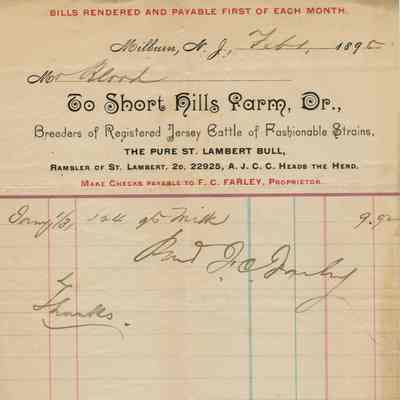 BILLS RENDERED AND PAYABLE FIRST OF EACH MONTH.
Milburn, N. J., Feb 1, 1895
Mr Blood
To Short Hills Farm, Dr.,
Breeders of Registered Jersey Cattle of Fashionable Strains,
THE PURE ST. LAMBERT BULL,
RAMBLER OF ST. LAMBERT, 2D, 22925, A. J. C. C. HEADS THE HERD.
MAKE CHECKS PAYABLE TO F. C. FARLEY, PROPRIETOR.
124 qts Milk 9.92
Paid F. C. Farley
Thanks.